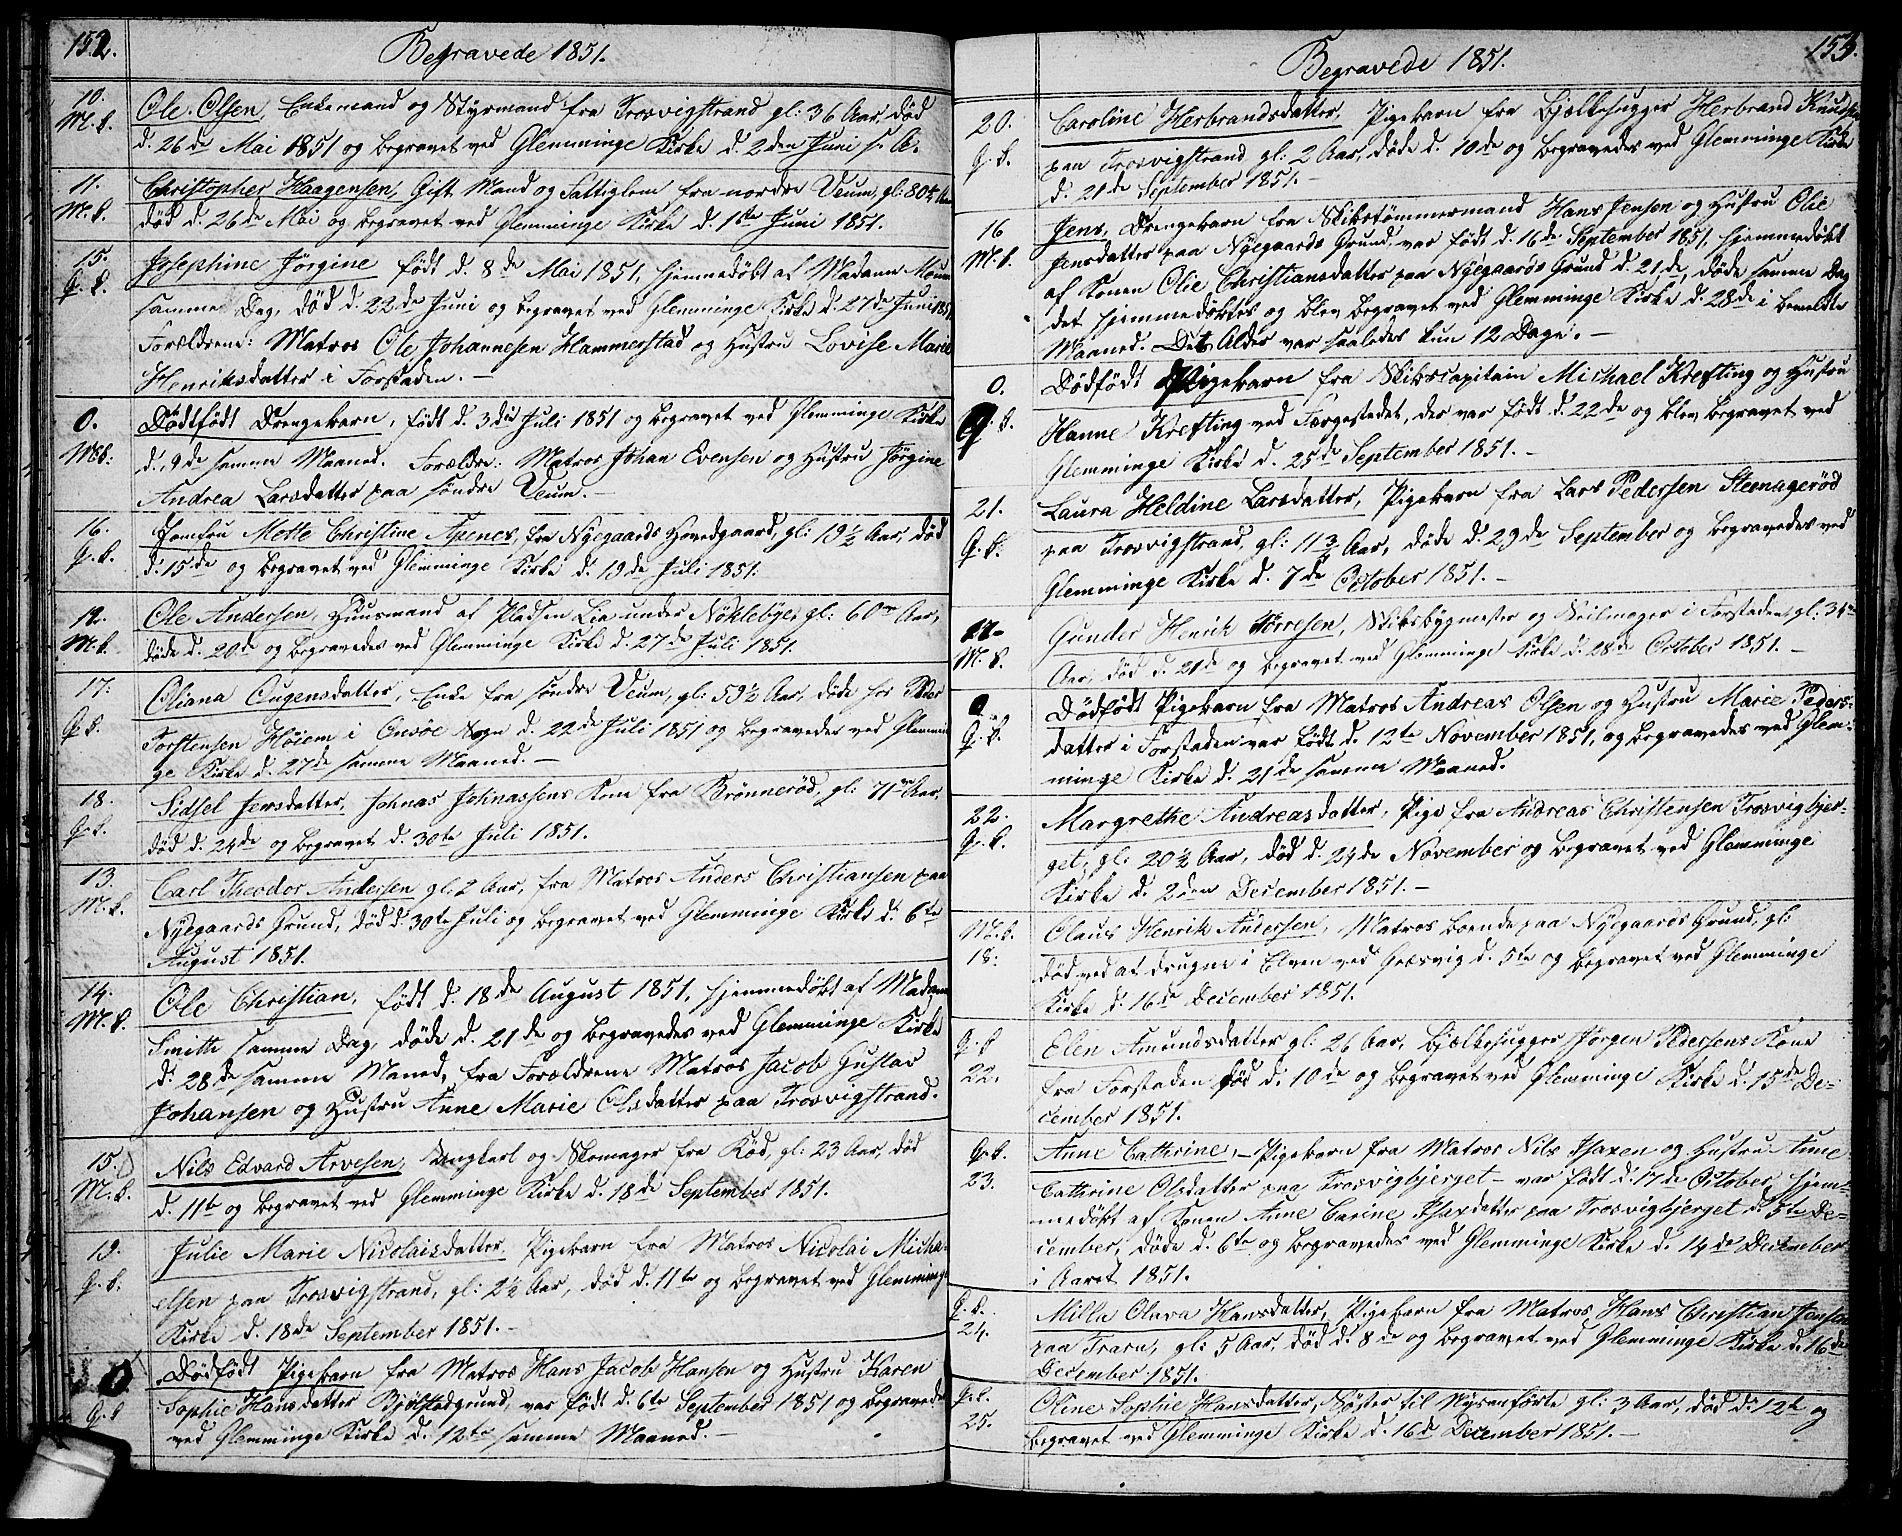 152.
Begravede 1851.
10. Ole Olsen, Enkemand og Styrmand fra Trosvigstrand gl: 36 Aar, død
M.k. d. 26de Mai 1851 og begravet ved Glemminge Kirke d. 2den Juni s. A.
11. Christopher Haagensen, Gift Mand og Fattiglem fra nordre Veum, gl: 80 Aar
M.k. død d. 26de Mai og begravet ved Glemminge Kirke d. 1ste Juni 1851.
15. Josephine Jörgine født d. 8de Mai 1851, hjemmedöbt af Madame
Q.k. samme Dag, død d. 22de Juni og begravet ved Glemminge Kirke d. 27de Juni 1851
Forældrene: Matros Ole Johannesen Hammerstad og Hustru Lovise Marie
Henriksdatter i Forstaden. —
0. Dødfödt Drengebarn, født d. 3die Juli 1851 og begravet ved Glemminge Kirke
Mk: d. 9de samme Maaned. Forældre: Matros Johan Evensen og Hustru Jörgine
Andrea Larsdatter paa söndre Veum. —
16. Jomfru Mette Christine Apenes, fra Nyegaards Hovedgaard, gl: 19½ Aar, død
Q.k. d. 15de og begravet ved Glemminge Kirke d. 19de Juli 1851.
12. Ole Andersen, Huusmand af Pladsen Lia under Nöklebye, gl: 60 Aar,
M.k. døde d. 20de og begravedes ved Glemminge Kirke d. 27de Juli 1851.
17: Oliana Augensdatter, Enke fra söndre Veum, gl: 59½ Aar, døde hos Peder
Q.k. Torstensen Höiem i Onsöe Sogn d. 22de Juli 1851 og begravedes ved Glemmin-
ge Kirke d. 27de samme Maaned. —
18. Sidsel Jensdatter, Johnas Johnassens Kone fra Brönnerød, gl: 71 Aar,
Q.k. død d. 24de og begravet d. 30te Juli 1851.
13. Carl Theodor Andersen gl: 2 Aar, fra Matros Anders Christiansen paa
M.k. Nyegaards Grund, død d. 30te Juli og begravet ved Glemminge Kirke d. 6te
August 1851.
14. Ole Christian, født d. 18de August 1851, hjemmedöbt af Madame
M.k. Smith samme Dag, døde d. 21de og begravedes ved Glemminge Kirke
d. 28de samme Maned, fra Forældrene Matros Jacob Gustav
Johansen og Hustru Anne Marie Olsdatter paa Trosvigstrand.
15. Nils Edvard Arvesen, Ungkarl og Skomager fra Röd, gl: 23 Aar, død
M.k. d. 11te og begravet ved Glemminge Kirke d. 18de September 1851.
19. Julie Marie Nicolaisdatter, Pigebarn fra Matros Nicolai Micha-
Q.k. elsen paa Trosvigstrand, gl: 2½ Aar, død d. 11te og begravet ved Glemminge
Kirke d. 18de September 1851. —
0 Dødfödt Pigebarn fra Matros Hans Jacob Hansen og Hustru Karen
Q.k Sophie Hansdatter Bjölstadgrund, var født d. 6te September 1851 og begravedes
ved Glemminge Kirke d. 12te samme Maaned. —
153.
Begravede 1851.
20. Caroline Herbrandsdatter, Pigebarn fra Bjælkehugger Herbrand Knudsen
Q.k. paa Trosvigstrand gl: 2 Aar, døde d. 10de og begravedes ved Glemminge Kirke
d. 21de September 1851. —
16 Jens, Drengebarn fra Skibstømmermand Hans Jensen og Hustru Olie
M.k. Jensdatter paa Nyegaards Grund, var født d. 16de September 1851, hjemmedöbt
af Konen Olie Christiansdatter paa Nyegaards Grund d. 21de, døde samme Dag
det hjemmedöbtes og blev begravet ved Glemminge Kirke d. 28de i bemeldte
Maaned. Dets Alder var saaledes kun 12 Dage. —
0. Dödfödt Pigebarn fra Skibscapitain Michael Krefting og Hustru
Q.k. Hanne Krefting ved Færgestedet, der var født d. 22de og blev begravet ved
Glemminge Kirke d. 25de September 1851. —
21. Laura Heldine Larsdatter, Pigebarn fra Lars Pedersen Steenagerød
Q.k. paa Trosvigstrand, gl: 11¾ Aar, døde d. 29de September og begravedes ved
Glemminge Kirke d. 7de October 1851. —
17- Gunder Henrik Törresen, Skibsbygmester og Seilmager i Forstaden, gl: 34
M.k. Aar, død d. 21de og begravet ved Glemminge Kirke d. 28de October 1851. —
0 Dødfödt Pigebarn fra Matros Andreas Olsen og Hustru Marie Peders-
Q.k. datter i Forstaden var født d. 12te November 1851, og begravedes ved Glem-
minge Kirke d. 21de samme Maaned.
22. Margrethe Andreasdatter, Pige fra Andreas Christensen Trosvigbjer-
Q.k. get, gl: 20½ Aar, død d. 24de November og begravet ved Glemminge
Kirke d. 2den December 1851. —
M.k. Claus Henrik Andersen, Matros boende paa Nyegaards Grund, gl:
18: død ved at drugne i Elven ved Græsvig d. 5te og begravet ved Glemminge
Kirke d. 16de December 1851.
Q.k Elen Amundsdatter gl: 26 Aar, Bjælkehugger Jörgen Pedersens Kone
22. fra Forstaden død d. 10de og begravet ved Glemminge Kirke d. 15de De-
cember 1851.
Q.k. Anne Cathrine, — Pigebarn fra Matros Nils Isaxen og Hustru Anne
23. Cathrine Olsdatter paa Trosvigbjerget — var født d. 17de October, hjem-
medöbt af Konen Anne Carine Isaxdatter paa Trosvigbjerget d. 5te De-
cember, døde d. 6te og begravedes ved Glemminge Kirke d. 14de December
i Aaret 1851.
Q.k. Milla Olava Hansdatter, Pigebarn fra Matros Hans Christian Jensen
24. paa Trara, gl: 5 Aar, død d. 8de og begravet ved Glemminge Kirke d. 16de
December 1851.
Q.k. Oline Sophie Hansdatter, Söster til Nysanförte gl: 3 Aar, død d. 12te og
25. begravet ved Glemminge Kirke d. 16de December 1851. —